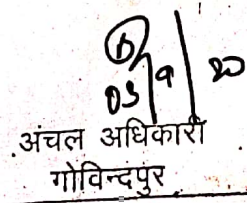 05/9/20
अंचल अधिकारी
गोविन्दपुर